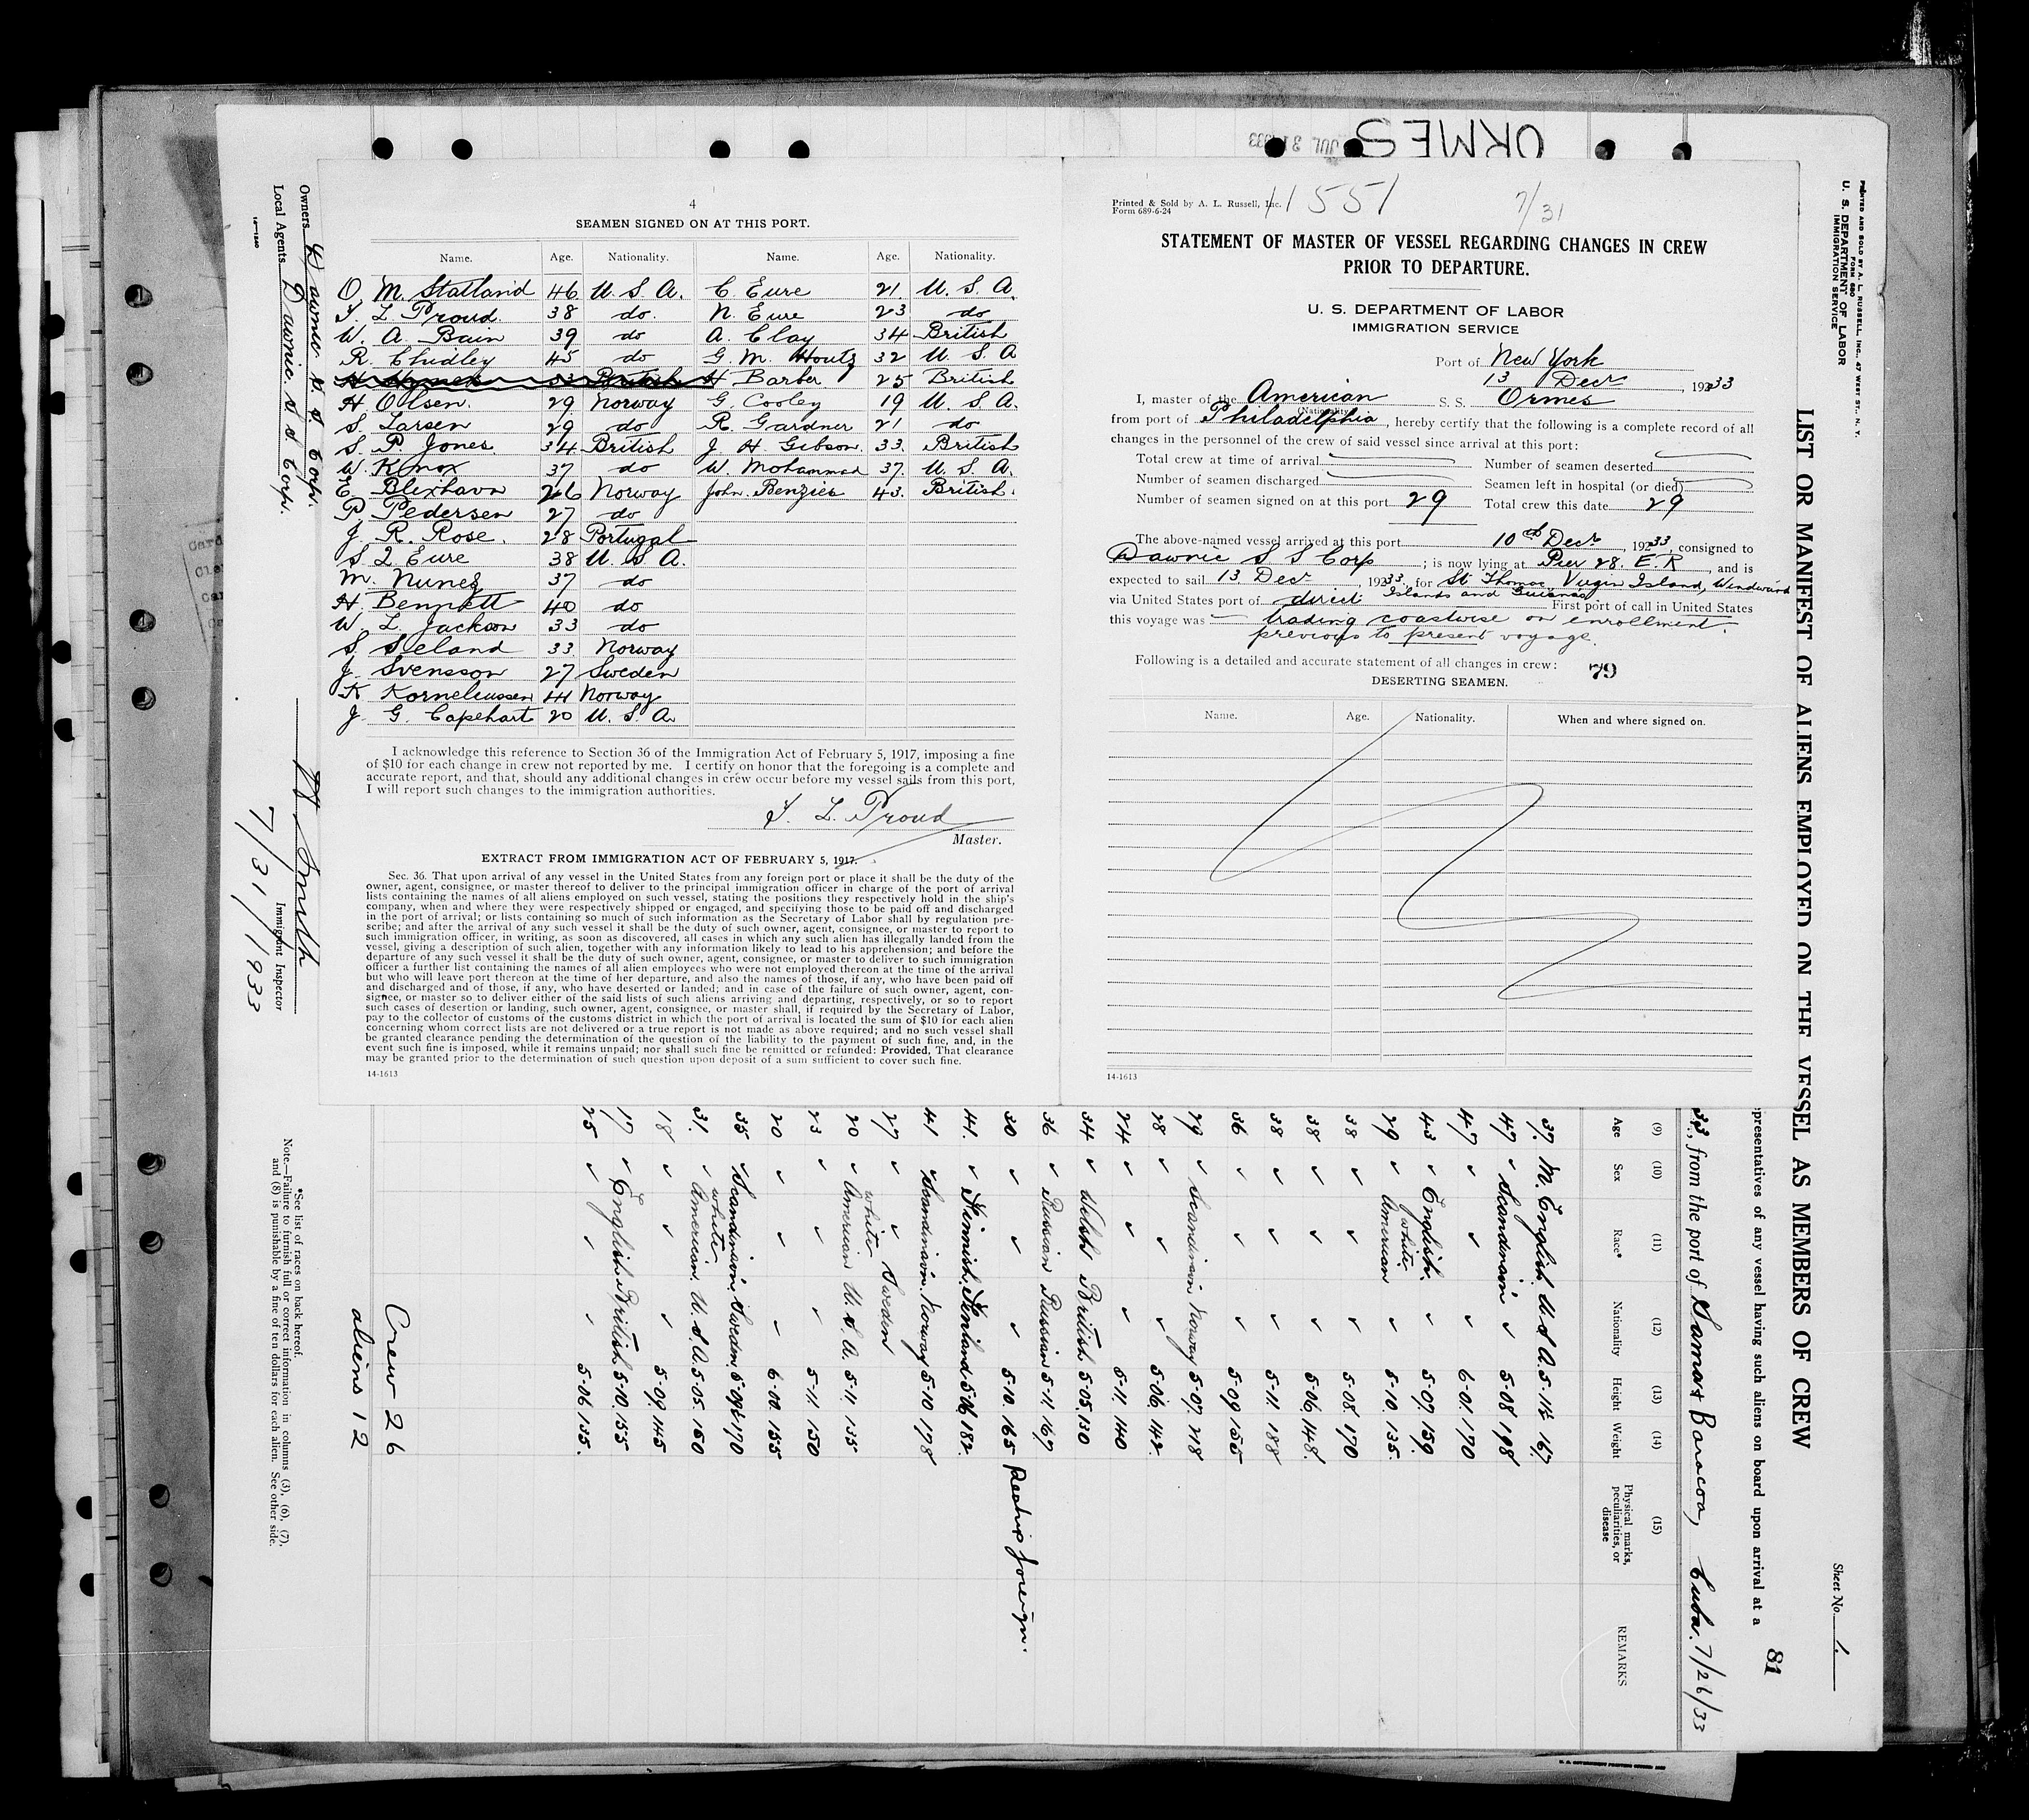 ORMES
JUL 31 1933
4
SEAMEN SIGNED ON AT THIS PORT.
Name. Age. Nationality. Name. Age. Nationality.
O. M. Statland 46 U. S. A. C. Eure 21. U. S. A.
F. L. Proud 38 do. N. Eure 23 do
W. A. Bain 39 do A. Clay 34 British
R. Chidley 45 do G. M. Houtz 32 U. S. A
33 British H Barber 25 British
H Olsen. 29 Norway G. Cooley 19 U. S. A.
S. Larsen 29 do R. Gardner 21 do
S. P. Jones 34 British J. H. Gibson. 33. British
W. Knox 37 do W. Mohammad 37. U. S. A.
E. Blixhavn 26 Norway John. Benzies 43. British.
P Pedersen 27 do
J. R. Rose. 28 Portugal
S. L. Eure 38 U. S. A.
M. Nunez 37 do
H. Bennett 40 do
W. L. Jackson 33 do
S. Sleland 33 Norway
J. Svensson 27 Sweden
K Korneliussen 44 Norway
J. G. Capehart 20 U. S. A.
I acknowledge this reference to Section 36 of the Immigration Act of February 5, 1917, imposing a fine
of $10 for each change in crew not reported by me. I certify on honor that the foregoing is a complete and
accurate report, and that, should any additional changes in crew occur before my vessel sails from this port,
I will report such changes to the immigration authorities.
F. L. Proud
Master.
EXTRACT FROM IMMIGRATION ACT OF FEBRUARY 5, 1917.
Sec. 36. That upon arrival of any vessel in the United States from any foreign port or place it shall be the duty of the
owner, agent, consignee, or master thereof to deliver to the principal immigration officer in charge of the port of arrival
lists containing the names of all aliens employed on such vessel, stating the positions they respectively hold in the ship's
company, when and where they were respectively shipped or engaged, and specifying those to be paid off and discharged
in the port of arrival; or lists containing so much of such information as the Secretary of Labor shall by regulation pre-
scribe; and after the arrival of any such vessel it shall be the duty of such owner, agent, consignee, or master to report to
such immigration officer, in writing, as soon as discovered, all cases in which any such alien has illegally landed from the
vessel, giving a description of such alien, together with any information likely to lead to his apprehension; and before the
departure of any such vessel it shall be the duty of such owner, agent, consignee, or master to deliver to such immigration
officer a further list containing the names of all alien employees who were not employed thereon at the time of the arrival
but who will leave port thereon at the time of her departure, and also the names of those, if any, who have been paid off
and discharged and of those, if any, who have deserted or landed; and in case of the failure of such owner, agent, con-
signee, or master so to deliver either of the said lists of such aliens arriving and departing, respectively, or so to report
such cases of desertion or landing, such owner, agent, consignee, or master shall, if required by the Secretary of Labor,
pay to the collector of customs of the customs district in which the port of arrival is located the sum of $10 for each alien
concerning whom correct lists are not delivered or a true report is not made as above required; and no such vessel shall
be granted clearance pending the determination of the question of the liability to the payment of such fine, and, in the
event such fine is imposed, while it remains unpaid; nor shall such fine be remitted or refunded: Provided, That clearance
may be granted prior to the determination of such question upon deposit of a sum sufficient to cover such fine.
14-1613
Printed & Sold by A. L. Russell, Inc.
Form 689-6-24
11551
7/31
STATEMENT OF MASTER OF VESSEL REGARDING CHANGES IN CREW
PRIOR TO DEPARTURE.
U. S. DEPARTMENT OF LABOR
IMMIGRATION SERVICE
Port of New York
13 Decr, 1933
I, master of the American S. S. Ormes
(Nationality)
from port of Philadelphia, hereby certify that the following is a complete record of all
changes in the personnel of the crew of said vessel since arrival at this port:
Total crew at time of arrival Number of seamen deserted
Number of seamen discharged Seamen left in hospital (or died)
Number of seamen signed on at this port 29 Total crew this date 29
The above-named vessel arrived at this port 10th Decr, 1933, consigned to
Dawnic S S Corp; is now lying at Pier 28. E. R, and is
expected to sail 13 Decr 1933, for St. Thomas Virgin Island, Windward
Islands and Guianas
via United States port of direct First port of call in United States
this voyage was trading coastwise on enrollment.
previous to present voyage.
Following is a detailed and accurate statement of all changes in crew:
79
DESERTING SEAMEN.
Name. Age. Nationality. When and where signed on.
14-1613
PRINTED AND SOLD BY A. L. RUSSELL, INC., 47 WEST ST., N. Y.
FORM 680
U. S. DEPARTMENT OF LABOR
IMMIGRATION SERVICE
Sheet No. 1.
LIST OR MANIFEST OF ALIENS EMPLOYED ON THE VESSEL AS MEMBERS OF CREW
81
presentatives of any vessel having such aliens on board upon arrival at a
33, from the port of Samas Baracoa, Cuba. 7/26/33
(9) (10) (11) (12) (13) (14) (15)
Age Sex Race* Nationality Height Weight Physical marks, peculiarities, or disease REMARKS
37. M. English U S A. 5-11½ 167
47 ✓ Scandinavian ✓ 5-08 198
47 ✓ ✓ ✓ 6-01 170
43 ✓ English. ✓ 5-07 159.
29 ✓ white American ✓ 5-10 135.
38 ✓ ✓ ✓ 5-08 170
38 ✓ ✓ ✓ 5-06 148.
38 ✓ ✓ ✓ 5-11 188
36 ✓ ✓ ✓ 5-09 155
29 ✓ Scandinavian Norway 5-07 218
28 ✓ ✓ ✓ 5-06 142
24 ✓ ✓ ✓ 5-11 140
34 ✓ Welsh British 5-05 130
36 ✓ Russian Russian 5-11 167
30 ✓ ✓ ✓ 5-10. 165 Reship foreign.
44. ✓ Finnish. Finland 5-06 182
41 Scandinavian. Norway 5-10 178
27 ✓ ✓ Sweden
20 ✓ white American U. S. A. 5-11 135
23 ✓ ✓ ✓ 5-11 150
20 ✓ ✓ ✓ 6-00 155
35 ✓ Scandinavian. Sweden. 5-09½ 170
31. ✓ white American. U. S. A. 5-05. 150
18 ✓ ✓ ✓ 5-09 145
17 ✓ English British 5-10. 155
25 ✓ ✓ ✓ 5-06 135.
Crew 26
aliens 12
*See list of races on back hereof.
Note.—Failure to furnish full or correct information in columns (3), (6), (7),
and (8) is punishable by a fine of ten dollars for each alien. See other side.
Owners Dawnic S S Corp.
Local Agents Dawnic. S S Corp.
Smith
Immigrant Inspector
7/31/1933